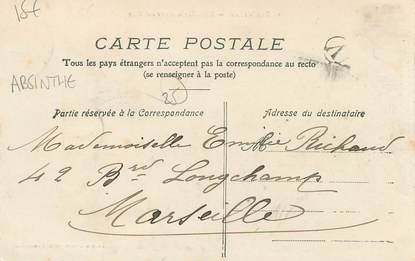 15f
CARTE POSTALE
Tous les pays étrangers n'acceptent pas la correspondance au recto
(se renseigner à la poste)
ABSINTHE
25
Partie réservée à la Correspondance
Adresse du destinataire
Mademoiselle Emilie Richaud
42 Brd Longchamp
Marseille